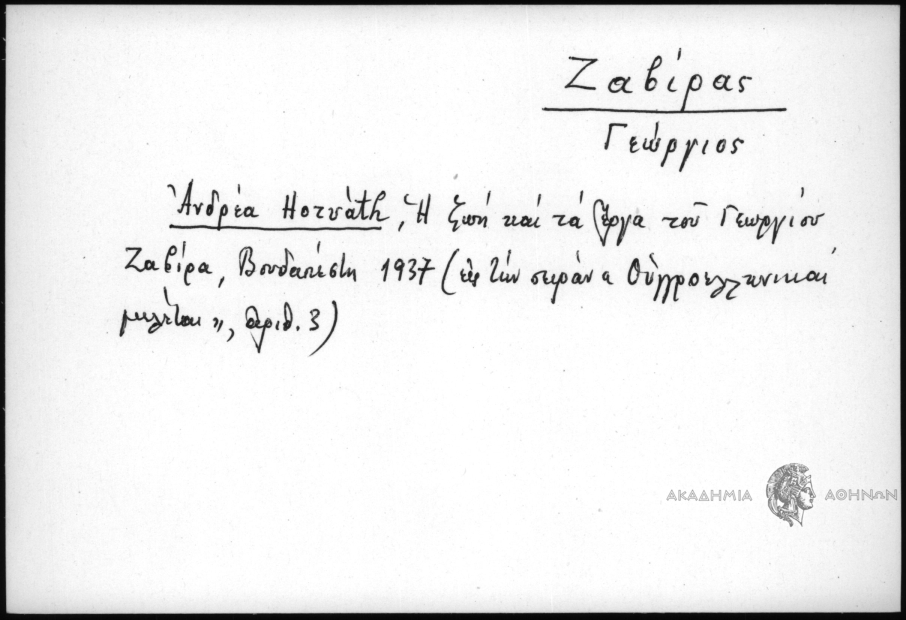 Ζαβίρας
Γεώργιος
Ἀνδρέα Horváth, Ἡ ζωή καί τά ἔργα τοῦ Γεωργίου
Ζαβίρα, Βουδαπέστη 1937 (εἰς τήν σειράν « Οὑγγροελληνικαί
μελέται », ἀριθ. 3)
ΑΚΑΔΗΜΙΑ ΑΘΗΝΩΝ